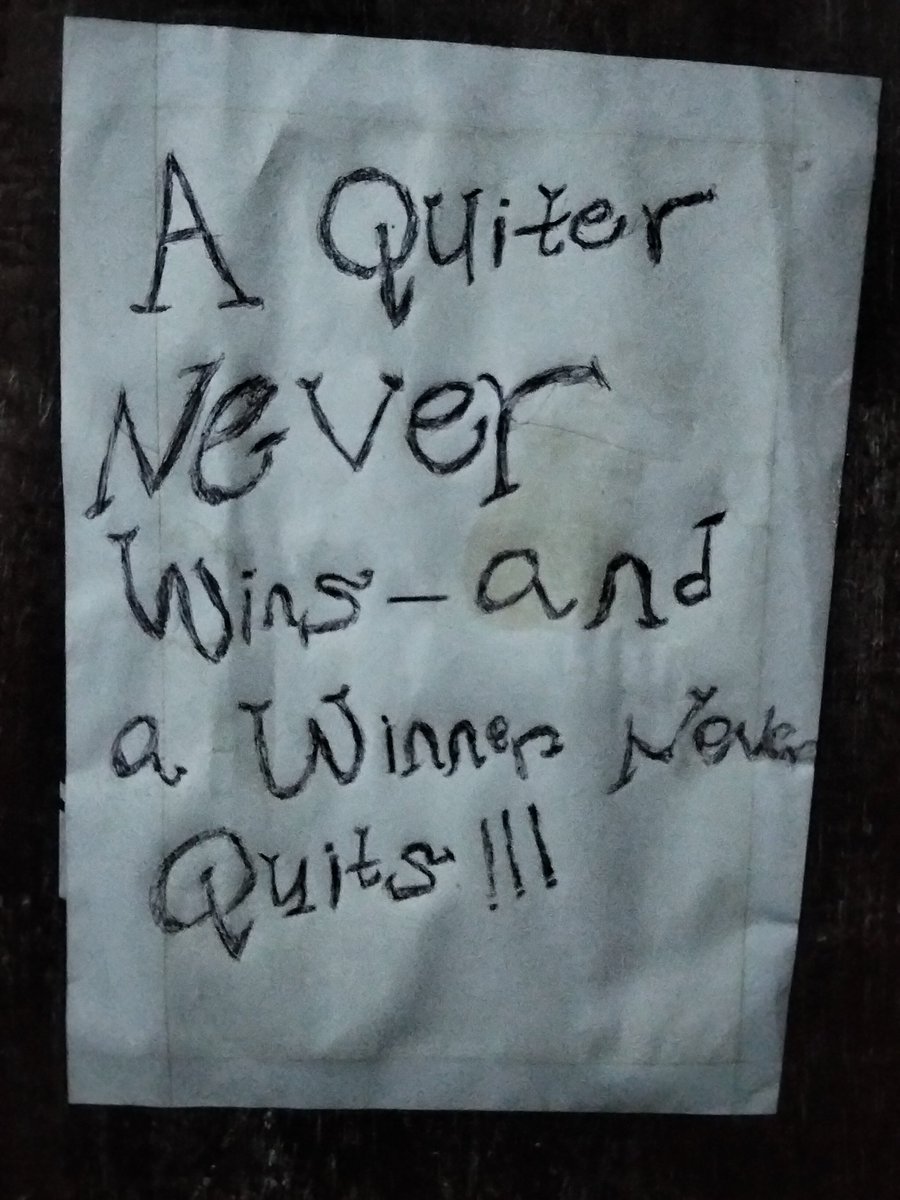 A Quiter
Never
Wins - and
a Winner Never
Quits!!!